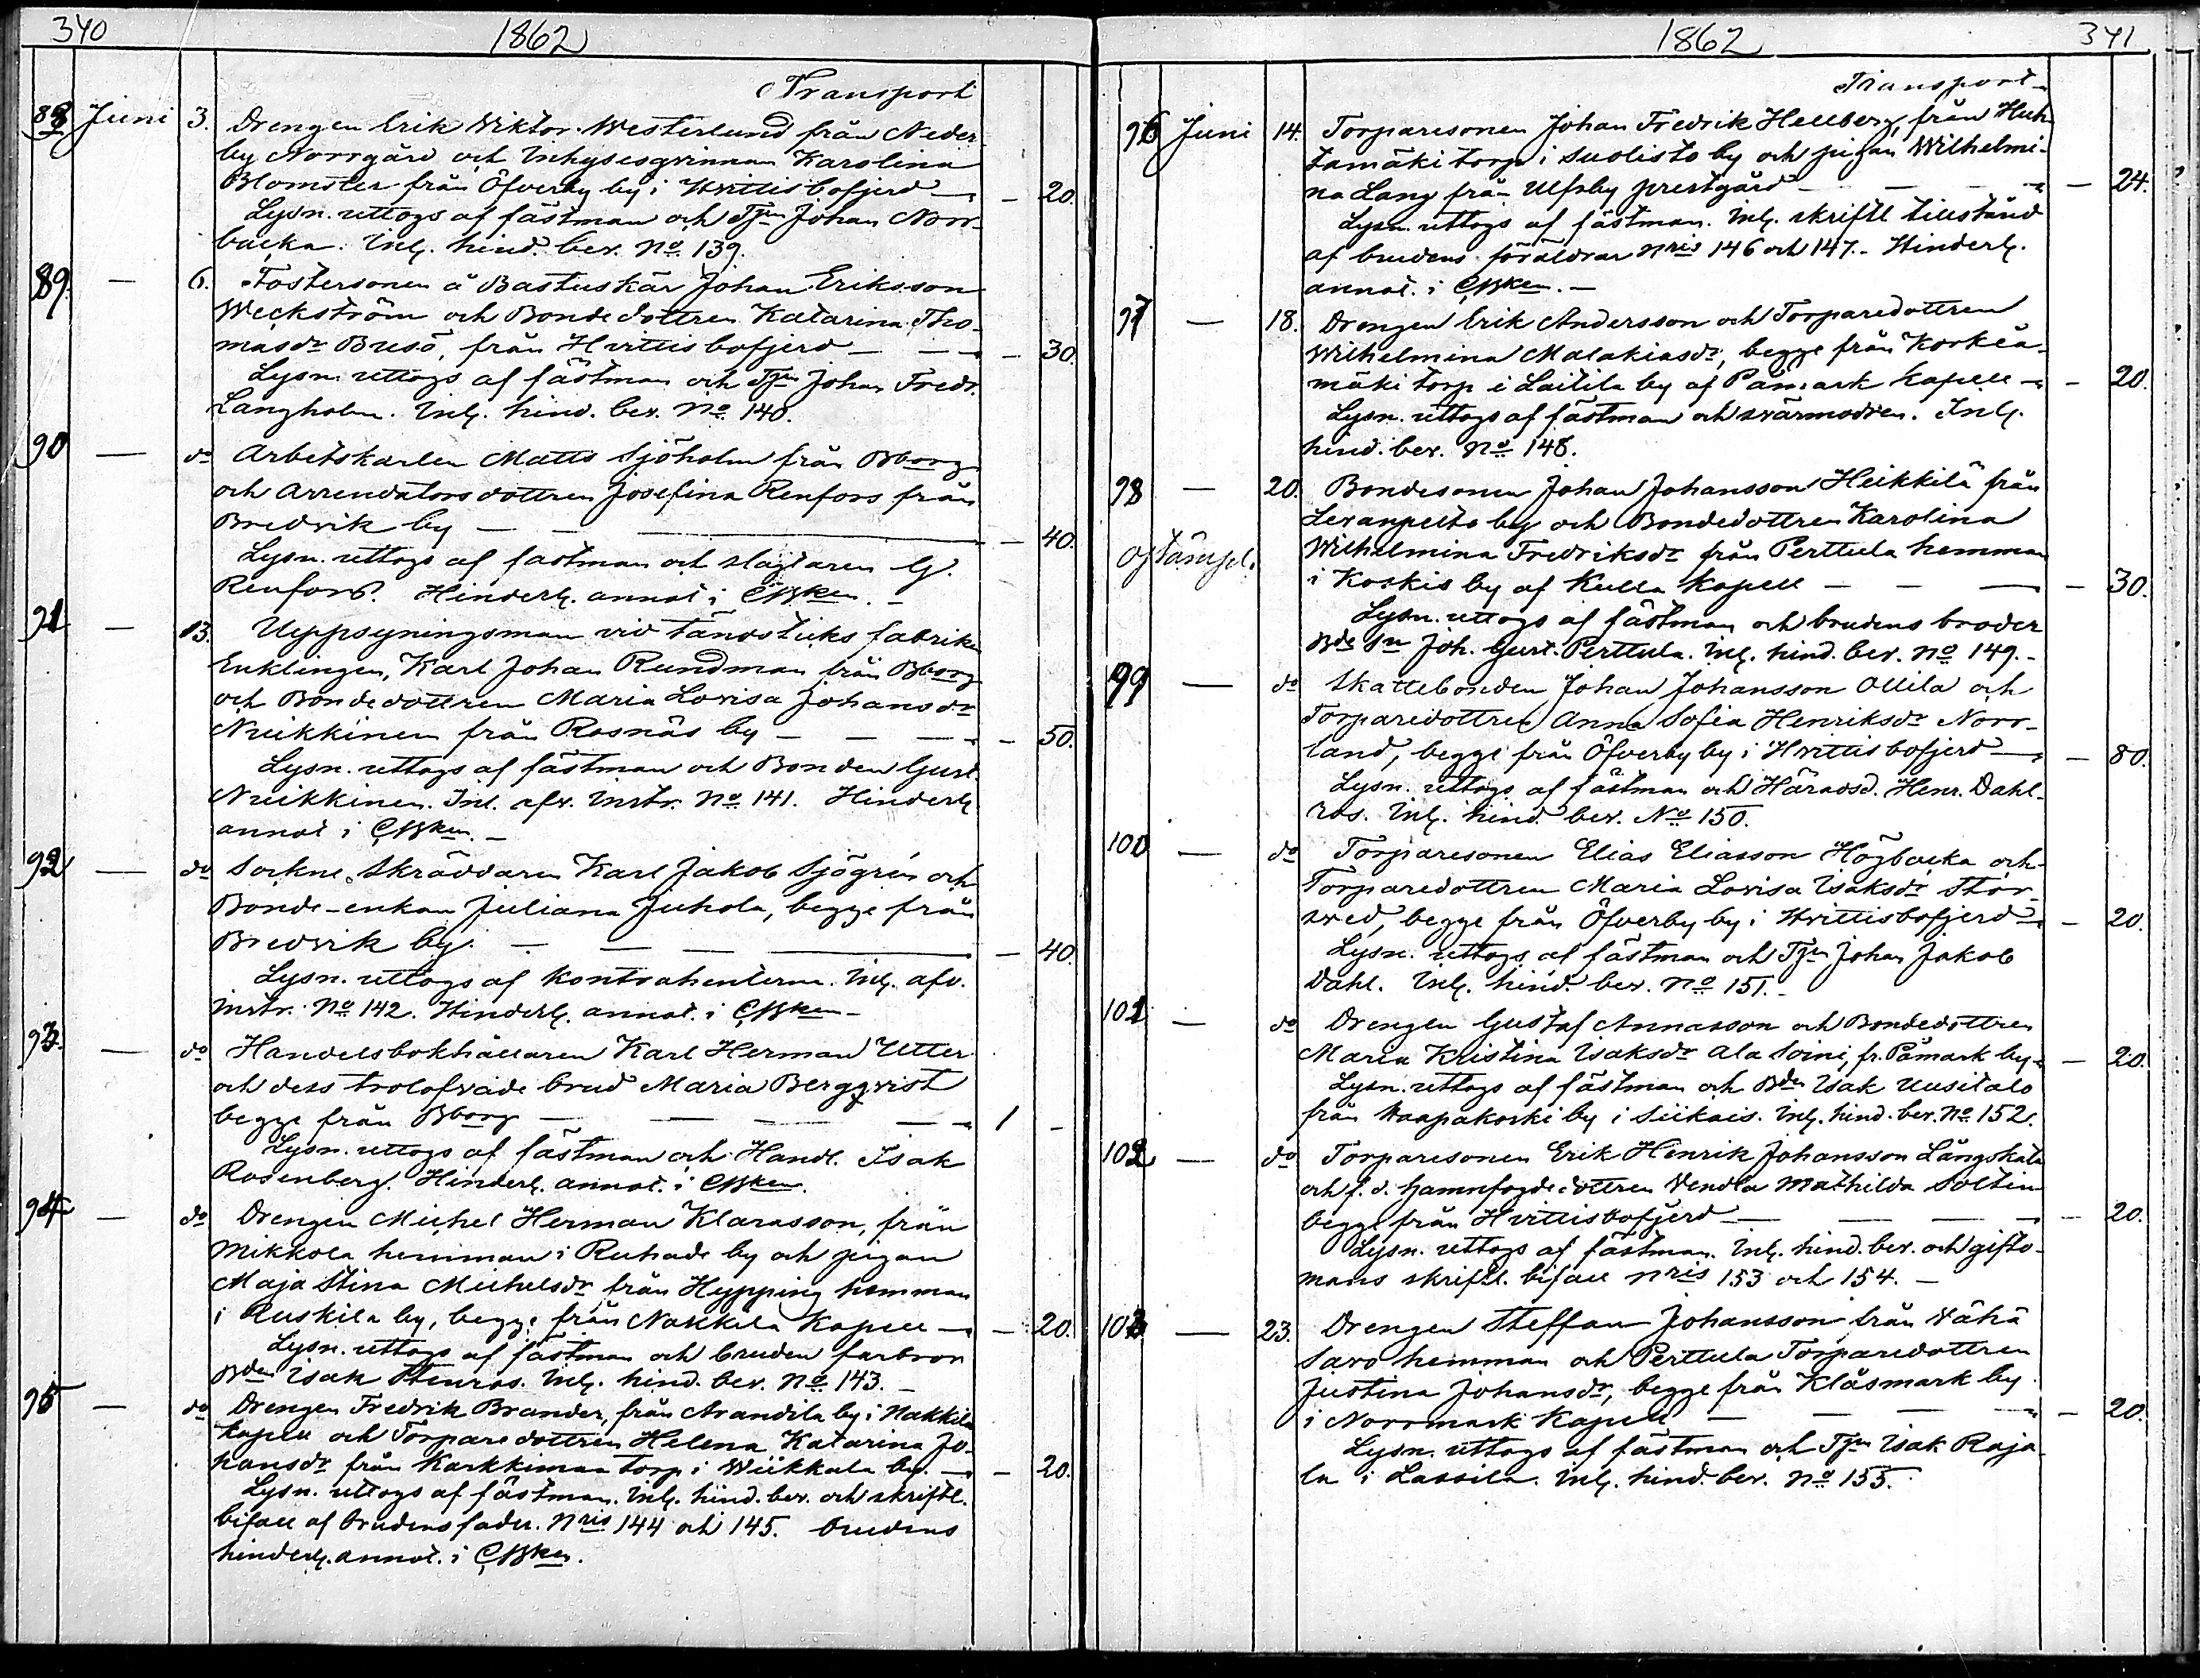 340
1862
Transport
88 Juni 3. Drengen Erik Wiktor Westerlund från Neder
by Norrgård och Inhysesqvinnan Karolina
Blomster från Öfverby by i Hvittisbofjerd - 20.
Lysn. uttogs af fästman och Tjn Johan Norr-
backa. Inlg. hind. bev. No 139.
89. — 6. Fostersonen å Bastuskär Johan Eriksson
Weckström och Bondedottren Katarina Tho-
masdr Busö, från Hvittisbofjerd — — - 30.
Lysn. uttogs af fästman och Tjn Johan Fredr.
Langholm. Inlg. hind. bev. No 140.
90 — do Arbetskarlen Matts Sjöholm från Bborg
och Arrendatorsdottren Josefina Renfors från
Bredvik by — — - 40.
Lysn. uttogs af fästman och slagtaren G.
Renfors. Hinderl. annot i CBken. -
91 — 13. Uppsyningsman vid Tändsticksfabriken
Enklingen, Karl Johan Rundman från Bborg
och Bondedottren Maria Lovisa Johansdr
Nuikkinen från Rosnäs by — — — - 50.
Lysn. uttogs af fästman och Bonden Gust.
Nuikkinen. Inl. afv. Instr. No 141. Hinderl.
annot i CBken. -
92 — do Sockne Skräddaren Karl Jakob Sjögrén och
Bonde-enkan Juliana Juhola, begge från
Bredvik by. — — - 40.
Lysn. uttogs af Kontrahenterna. Inlg. afv.
Instr. No 142. Hinderl. annot. i CBken -
93. — do Handelsbokhållaren Karl Herman Utter
och dess trolofvade brud Maria Bergqvist
begge från Bborg — — — — 1 -
Lysn. uttogs af fästman och Handl. Isak
Rosenberg. Hinderl. annot. i CBken.
94 — do Drengen Michel Herman Klarasson, från
Mikkola hemman i Ruhade by och pigan
Maja Stina Michelsdr från Hypping hemman
i Ruskila by, begge från Nakkila Kapell — - 20.
Lysn. uttogs af fästman och bruden farbror
Bden Isak Stenros. Inlg. hind. bev. No 143. -
95 — do Drengen Fredrik Brander, från Arandila by i Nakkila
kapell och Torparedottren Helena Katarina Jo-
hansdr från Karkkimaa torp i Wiikkala by. — - 20.
Lysn. uttogs af fästman. Inlg. hind. bev. och skriftl.
bifall af brudens fader. Nris 144 och 145. brudens
hinderl. annot. i CBken.
1862 341
Transport
96 Juni 14. Torparesonen Johan Fredrik Hellberg, från Huh
tamäki torp i Suolisto by och pigan Wilhelmi-
na Lang från Ulfsby prestgård — — — - 24.
Lysn. uttogs af fästman. Inlg. skriftl tillstånd
af brudens föräldrar Nris 146 och 147. - Hinderl.
annot. i CBken. -
97 — 18. Drengen Erik Andersson och Torparedottren
Wilhelmina Malakiasdr, begge från Korkea-
mäki torp i Laitila by af Påmark kapell — - 20.
Lysn. uttogs af fästman och svärmodren. Inlg.
hind. bev. No 148.
98 — 20. Bondesonen Johan Johansson Heikkilä från
Levanpelto by och Bondedottren Karolina
Wilhelmina Fredriksdr från Perttula hemman
i Koskis by af Kulla Kapell — — — - 30.
Lysn. uttogs af fästman och brudens broder
Bde Sn Joh. Gust. Perttula. Inlg. hind. bev. No 149. -
99 — do Skattebonden Johan Johansson Ollila och
Torparedottren Anna Sofia Henriksdr Norr-
land, begge från Öfverby by i Hvittisbofjerd — - 80.
Lysn. uttogs af fästman och Häradsd. Henr. Dahl-
ros. Inlg. hind. bev. No 150.
100 — do Torparesonen Elias Eliasson Högbacka och
Torparedottren Maria Lovisa Isaksdr Stor-
sved, begge från Öfverby by i Hvittisbofjerd - 20.
Lysn. uttogs af fästman och Tjn Johan Jakob
Dahl. Inlg. hind. bev. No 151. -
101 — do Drengen Gustaf Annasson och Bondedottren
Maria Kristina Isaksdr Ala Soini, fr. Påmark by - 20.
Lysn. uttogs af fästman och Bden Isak Uusitalo
från Haapakoski by i Siikais. Inlg. hind. bev. No 152.
102 — do Torparesonen Erik Henrik Johansson Långskata
och f. d. Hamnfogdedottren Vendla Mathilda Soltin
begge från Hvittisbofjerd — — — - 20.
Lysn. uttogs af fästman. Inlg. hind. bev. och gifto-
mans skriftl. bifall Nris 153 och 154. -
103 — 23. Drengen Steffan Johansson från Vähä
Savo hemman och Perttula Torparedottren
Justina Johansdr, begge från Klåsmark by
i Norrmark Kapell — — — - 20.
Lysn. uttogs af fästman och Tjn Isak Raja-
la i Lassila. Inlg. hind. bev. No 155.